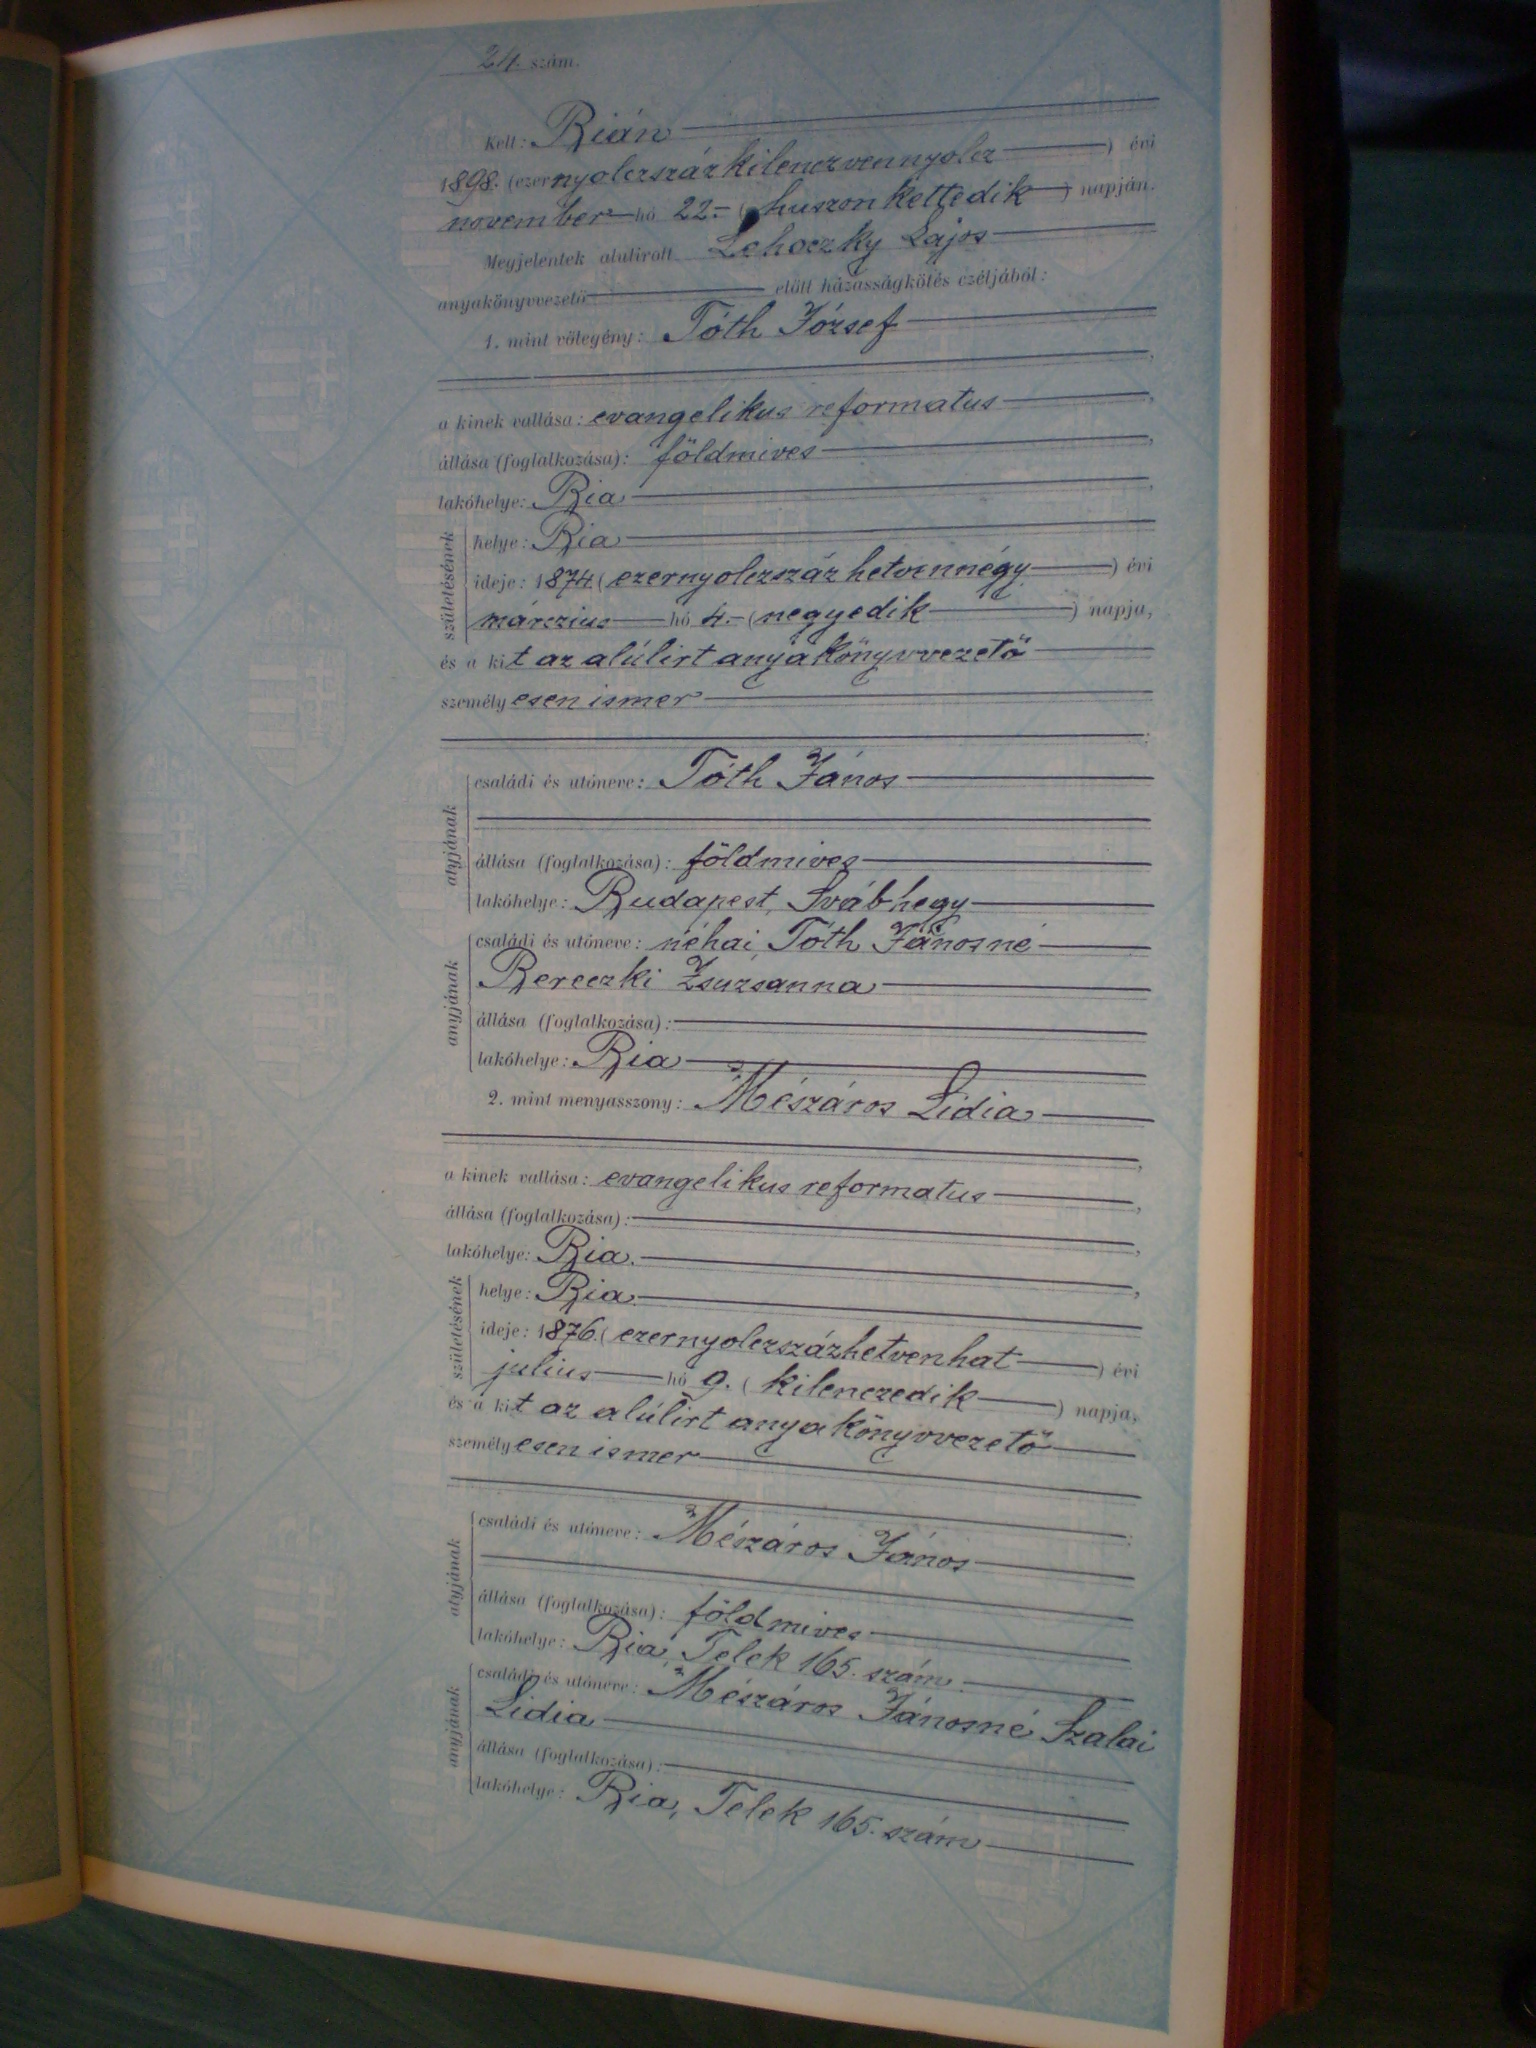 24. szám.
Kelt: Bián
1898. (ezernyolczszázkilenczvennyolcz) évi
november hó 22.- (huszonkettedik) napján.
Megjelentek alulirott Lehoczky Lajos
anyakönyvvezető előtt házasságkötés czéljából:
1. mint vőlegény: Tóth József
a kinek vallása: evangelikus reformatus,
állása (foglalkozása): földmives,
lakóhelye: Bia,
születésének
helye: Bia
ideje: 1874. (ezernyolczszáz hetvennégy) évi
márczius hó 4.- (negyedik) napja,
és a kit az alúlirt anyakönyvvezető
személyesen ismer
;
atyjának
családi és utóneve: Tóth János
állása (foglalkozása): földmives
lakóhelye: Budapest, Svábhegy
anyjának
családi és utóneve: néhai, Tóth Jánosné
Bereczki Zsuzsanna
állása (foglalkozása):
lakóhelye: Bia
2. mint menyasszony: Mészáros Lidia
,
a kinek vallása: evangelikus reformatus,
állása (foglalkozása):,
lakóhelye: Bia.,
születésének
helye: Bia.
ideje: 1876. (ezernyolczszázhetvenhat) évi
julius hó 9. (kilenczedik) napja,
és a kit az alúlirt anyakönyvvezető
személyesen ismer
;
atyjának
családi és utóneve: Mészáros János
állása (foglalkozása): földmives
lakóhelye: Bia, Telek 165. szám.
anyjának
családi és utóneve: Mészáros Jánosné Szalai
Lidia
állása (foglalkozása):
lakóhelye: Bia, Telek 165. szám